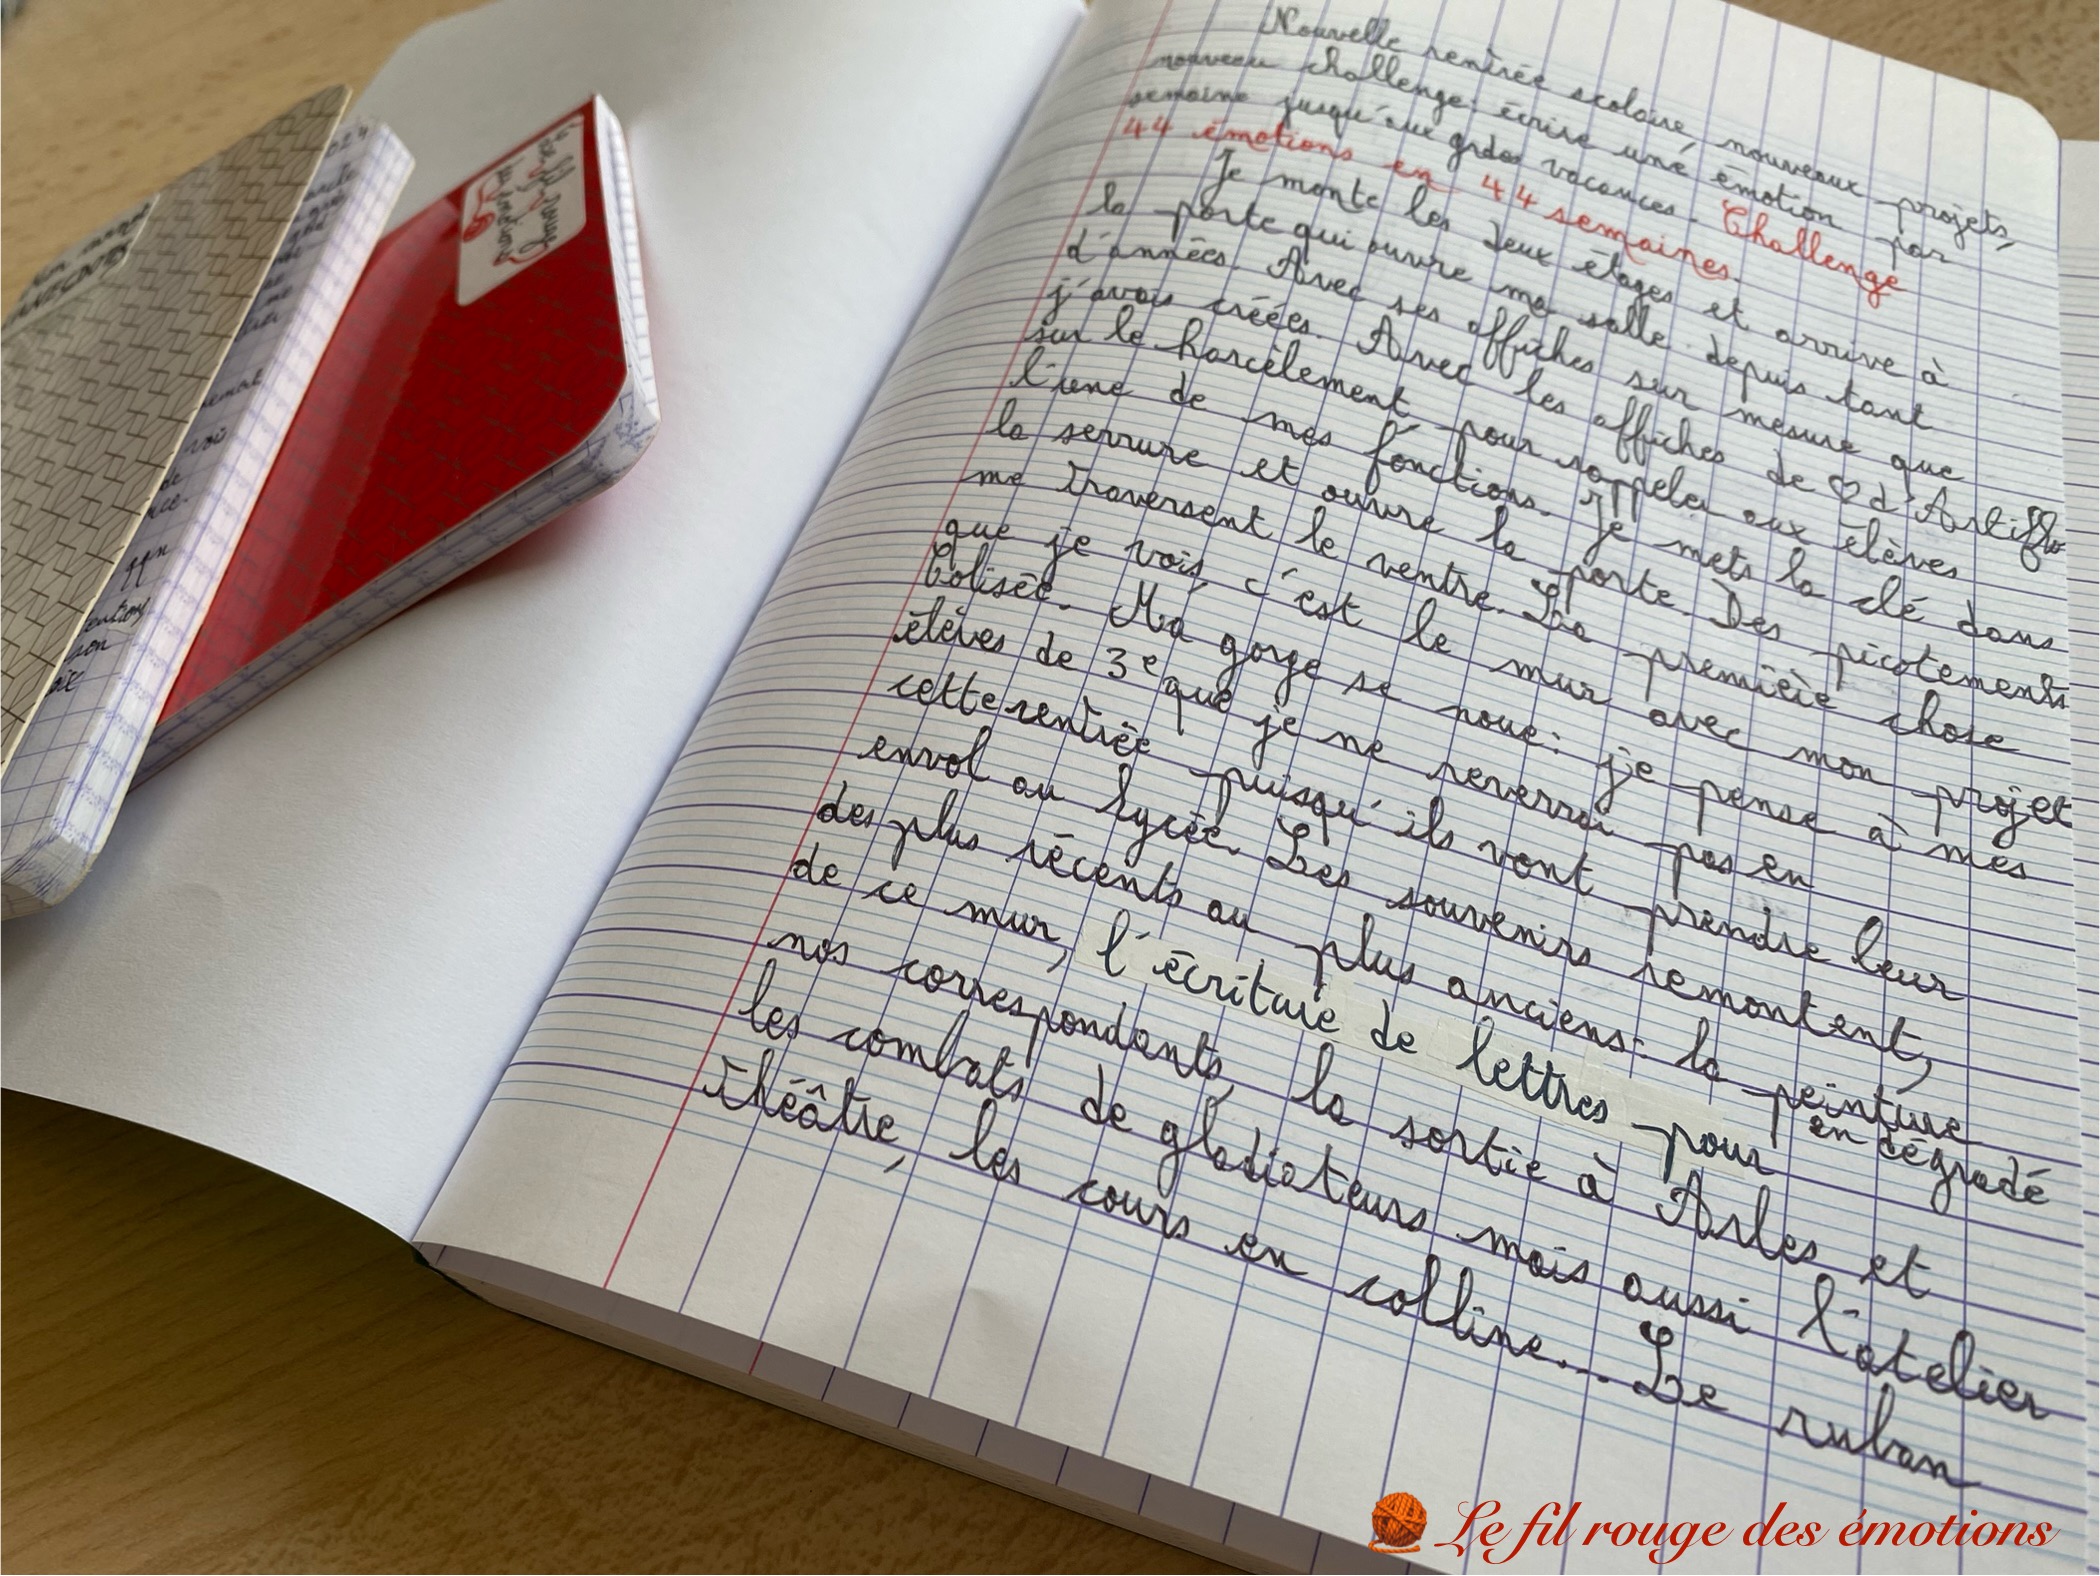 Nouvelle rentrée scolaire, nouveaux projets,
nouveau challenge: écrire une émotion par
semaine jusqu'aux grdes vacances. Challenge
44 émotions en 44 semaines.
Je monte les deux étages et arrive à
la porte qui ouvre ma salle depuis tant
d'années. Avec ses affiches sur mesure que
j'avais créées. Avec les affiches de ♡ d'Artiflo
sur le harcèlement pour rappeler aux élèves
l'une de mes fonctions. Je mets la clé dans
la serrure et ouvre la porte. Des picotements
me traversent le ventre. La première chose
que je vois, c'est le mur avec mon projet
Colisée. Ma gorge se noue: je pense à mes
élèves de 3e que je ne reverrai pas en
cette rentrée puisqu'ils vont prendre leur
envol au lycée. Les souvenirs remontent,
des plus récents au plus anciens: la peinture
en dégradé
de ce mur, l'écriture de lettres pour
nos correspondants, la sortie à Arles et
les combats de gladiateurs mais aussi l'atelier
théâtre, les cours en colline... Le ruban
Le fil rouge
des émotions
Le fil rouge des émotions